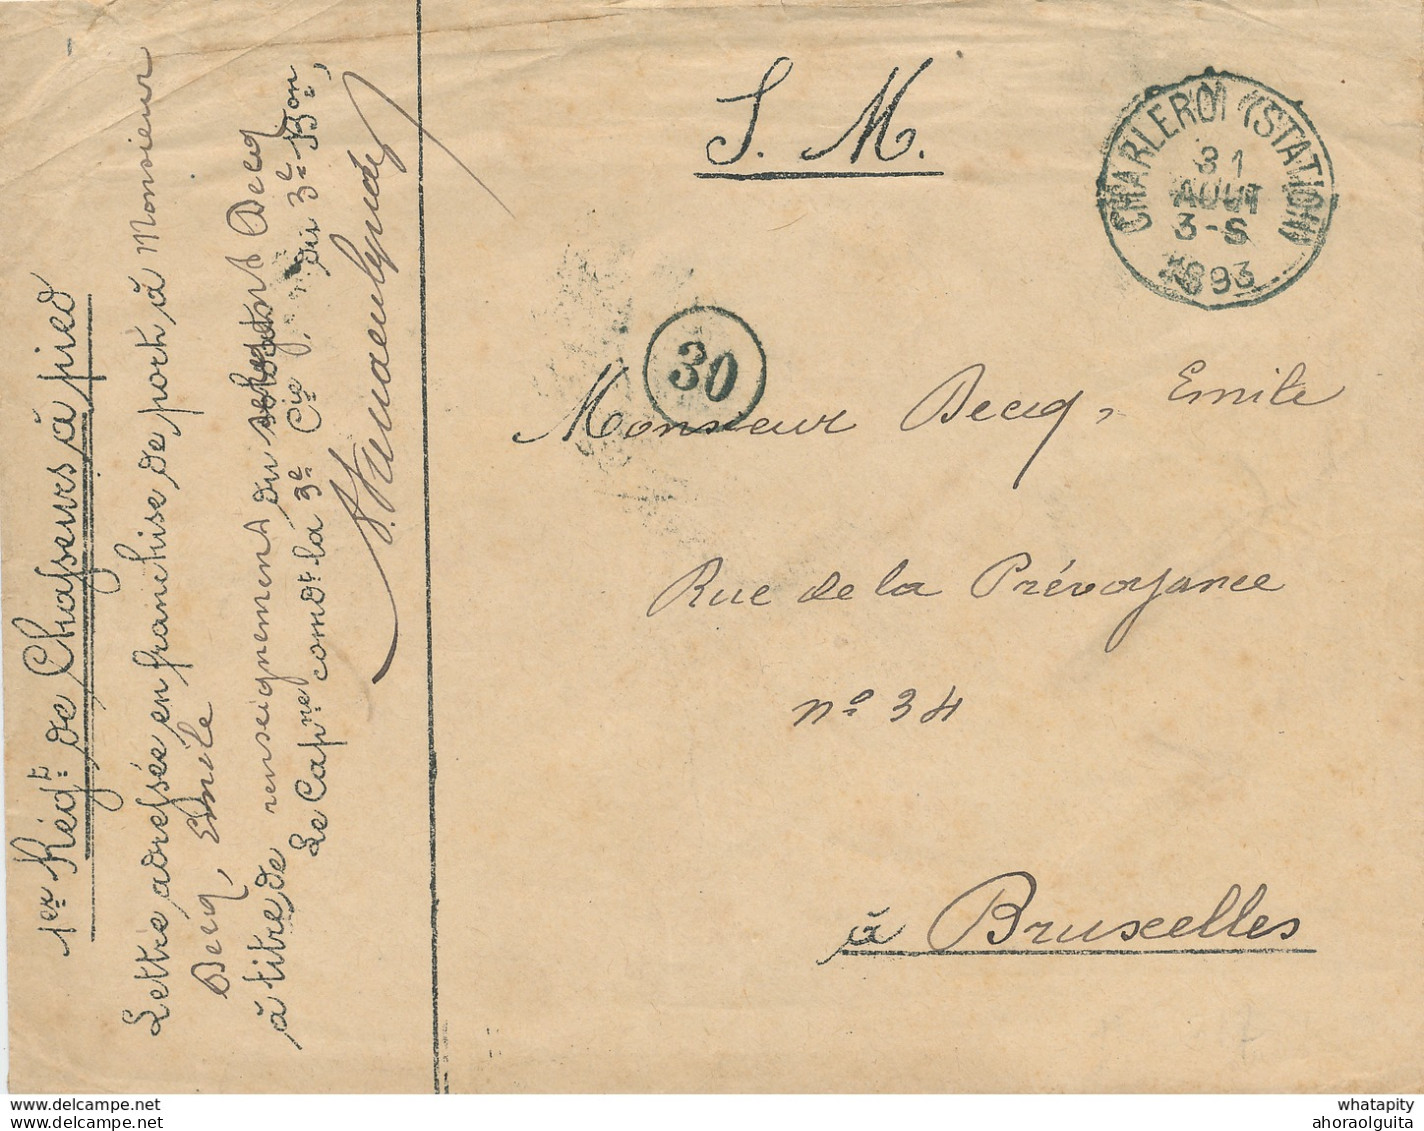 1er Régt de Chasseurs à pied
Lettre adressée en franchise de port, à Monsieur
Becq, Emile
à titre de renseignement du sergent Becq
Le Capne comdt la 3e Cie, du 3e Bon,
S. M.
CHARLEROI (STATION)
31
AOUT
3-S
1893
30
Monsieur Becq, Emile
Rue de la Prévoyance
no 34
à Bruxelles
www.delcampe.net
www.delcampe.net
whatapity
ahoraolguita